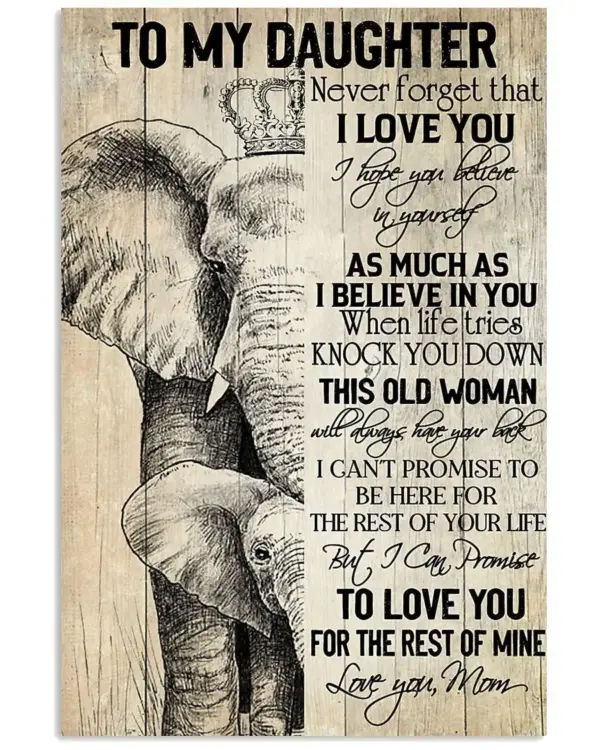 TO MY DAUGHTER
Never forget that
I LOVE YOU
I hope you believe
in yourself
AS MUCH AS
I BELIEVE IN YOU
When life tries
KNOCK YOU DOWN
THIS OLD WOMAN
will always have your back
I CAN'T PROMISE TO
BE HERE FOR
THE REST OF YOUR LIFE
But I Can Promise
TO LOVE YOU
FOR THE REST OF MINE
Love you, Mom